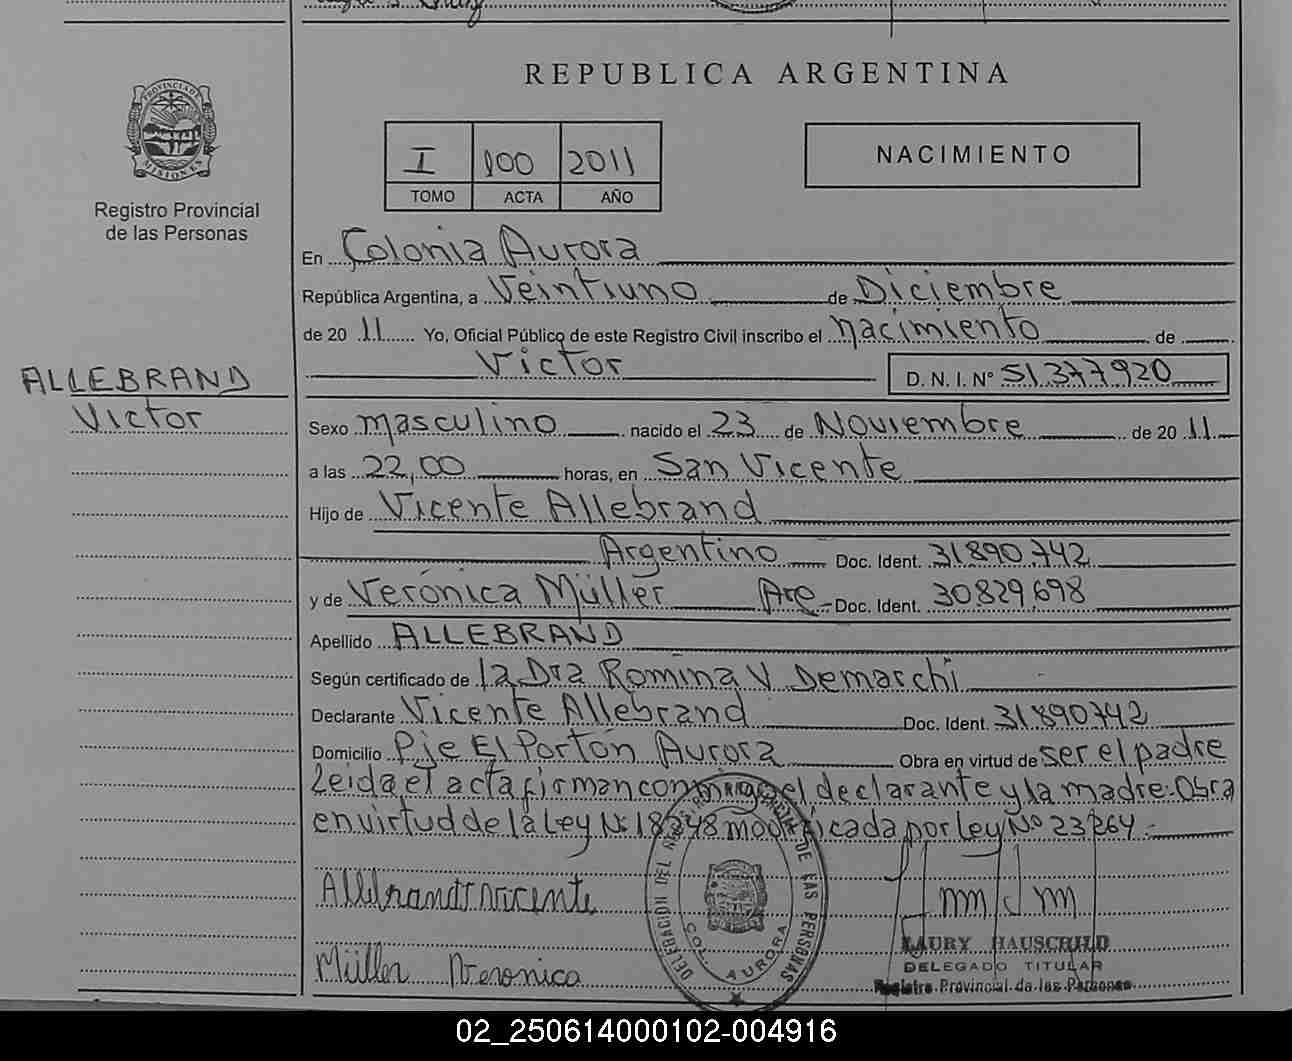 REPUBLICA ARGENTINA
PROVINCIA DE
MISIONES
Registro Provincial
de las Personas
I 100 2011
TOMO ACTA AÑO
NACIMIENTO
En Colonia Aurora
República Argentina, a Veintiuno de Diciembre
de 20 11 Yo, Oficial Público de este Registro Civil inscribo el nacimiento de
Victor
D. N. I. Nº 51377920
ALLEBRAND
Victor
Sexo masculino nacido el 23 de Noviembre de 20 11
a las 22,00 horas, en San Vicente
Hijo de Vicente Allebrand
Argentino Doc. Ident. 31890742
y de Verónica Müller Arg Doc. Ident. 30829698
Apellido ALLEBRAND
Según certificado de la Dra Romina V Demarchi
Declarante Vicente Allebrand Doc. Ident. 31890742
Domicilio Pje El Portón Aurora Obra en virtud de ser el padre
Leida el acta firman conmigo el declarante y la madre. Obra
en virtud de la Ley Nº 18248 modificada por ley Nº 23264.-
Allebrand Vicente
Müller Veronica
DE LAS PERSONAS
COL. AURORA
LAURY HAUSCHILD
DELEGADO TITULAR
Registro Provincial de las Personas
02_250614000102-004916